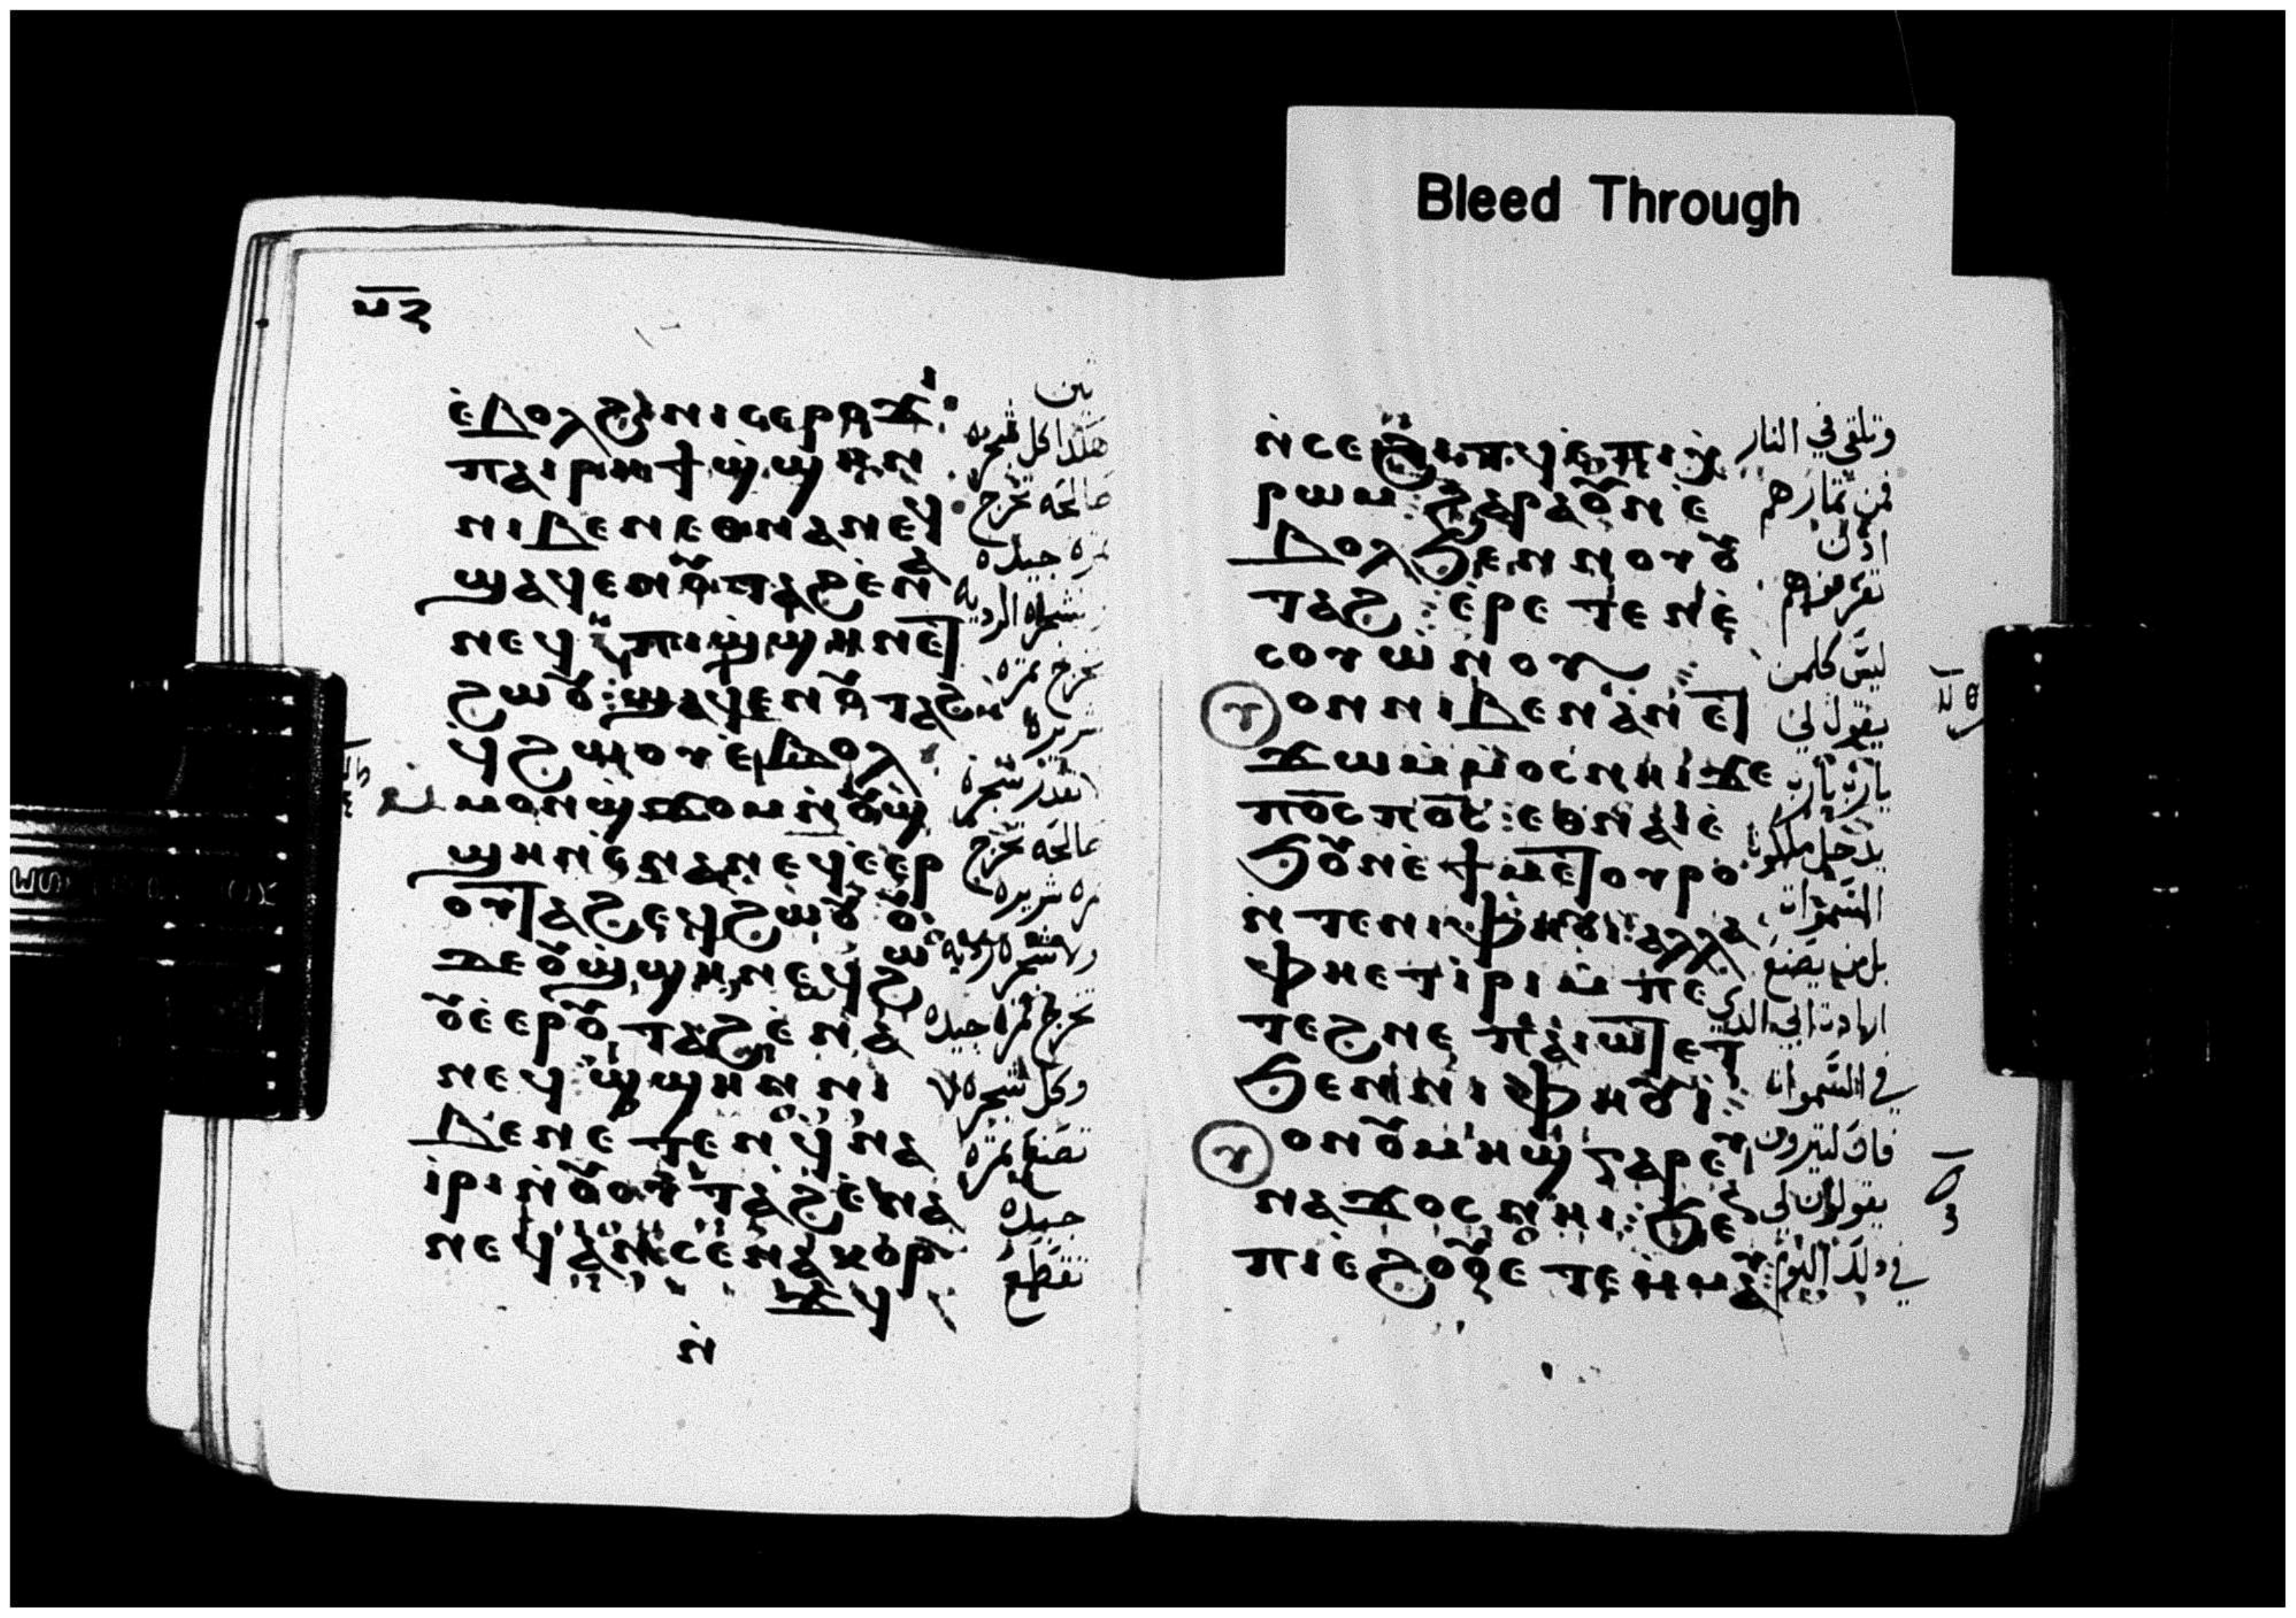 ⲙⲍ
ⲉ̀ⲃⲟⲗϩⲓⲛⲓⲥⲉⲣⲟϫⲓ:
ⲡⲁⲓⲣⲏϯϣ̀ϣⲏⲛ
ⲛⲓⲃⲉⲛⲉⲑⲛⲁⲛⲉϥ
ϣⲁϥⲉⲛⲟⲩⲧⲁϩⲉ̀ⲛⲁ
ⲛⲉϥ ⲡⲓϣ̀ϣⲏⲛⲉⲧ
ϩⲱⲟⲩ:ϣⲁϥⲉⲛⲟⲩⲧⲁϩⲉ
ϥϩⲱⲟⲩⲉ̀ⲃⲟⲗ
ⲙⲟⲛϣϫⲟⲙⲛ̀ⲟⲩϣ̀
ϣⲏⲛⲉⲛⲁⲛⲉϥⲉ̀ⲉⲣ
ⲟⲩⲧⲁϩⲉϥϩⲱⲟⲩ ⲟⲩ
ⲇⲉⲟⲩϣ̀ϣⲏⲛⲉϥϩⲱ
ⲟⲩⲉ̀ⲉⲣⲟⲩⲧⲁϩⲉ̀ⲛⲁ
ⲛⲉϥ:ϣ̀ϣⲏⲛ ⲛⲓ
ⲃⲉⲛⲉⲧⲉⲛϥ̀ⲛⲁ
ⲓⲣⲓⲛ̀ⲟⲩⲟⲩⲧⲁϩⲉ̀ⲛⲁ
ⲛⲉϥⲁⲛⲥⲉⲛⲁⲕⲟⲣ
ϫϥ
ⲛ̀
تين
هكذا كل شجره
صالحه تخرج
ثمره جيده
شجره الرديه
تخرج ثمره
شريره
تقدر شجره
صالحه تخرج
ثمره شريره
ولا شجره رديه
تخرج ثمره جيده
وكل شجره لا
تصنع ثمره
جيده
تقطع
Bleed Through
ⲛ̀ⲥⲉϩⲓⲧϥⲉ̀ⲡⲓⲭ̀
ⲣⲱⲙ:ϩⲁⲣⲁⲟⲩⲛⲉ̀
ⲃⲟⲗϧⲉⲛⲛⲟⲩⲟⲩ
ⲧⲁϩ:ⲉ̀ⲣⲉⲧⲉⲛⲉ̀
ⲥⲟⲩⲱⲛⲟⲩ
ⲟⲛⲛⲓⲃⲉⲛⲁⲛⲉⲧ
ϫⲱⲙ̀ⲙⲟⲥⲛⲏⲓϫⲉ
ⲡⲟ̅ⲥⲡⲟ̅ⲥ:ⲉⲑⲛⲁⲓ̀ⲉ̀
ϧⲟⲩⲛⲉ̀ϯⲙⲉⲧⲟⲩⲣⲟ
ⲛ̀ⲧⲉⲛⲓⲫⲏⲟⲩⲓ:ⲁⲗⲗⲁ
ⲫⲏⲉⲧⲓⲣⲓⲙ̀ⲡⲉ
ⲧⲉϩⲛⲉ ⲡⲁⲓⲱⲧⲉⲧ
ϧⲉⲛⲛⲓⲫⲏⲟⲩⲓ
ⲟⲛⲟⲩⲙⲏϣⲅⲁⲣⲉⲩ
ⲛⲁϫⲟⲥⲛⲏⲓ:ϧⲉⲛ
ⲡⲓⲉϩⲟⲟⲩⲉⲧⲉⲙⲙⲁⲩ
وتلقي في النار
فمن ثمارهم
اذن
تعرفونهم
ليس كلمن
يقول لي
يارب يارب
يدخل ملكوت
السموات
بل من يصنع
اراده ابي الذي
في السموات
فان كثيرون
يقولون لي
في ذلك اليوم